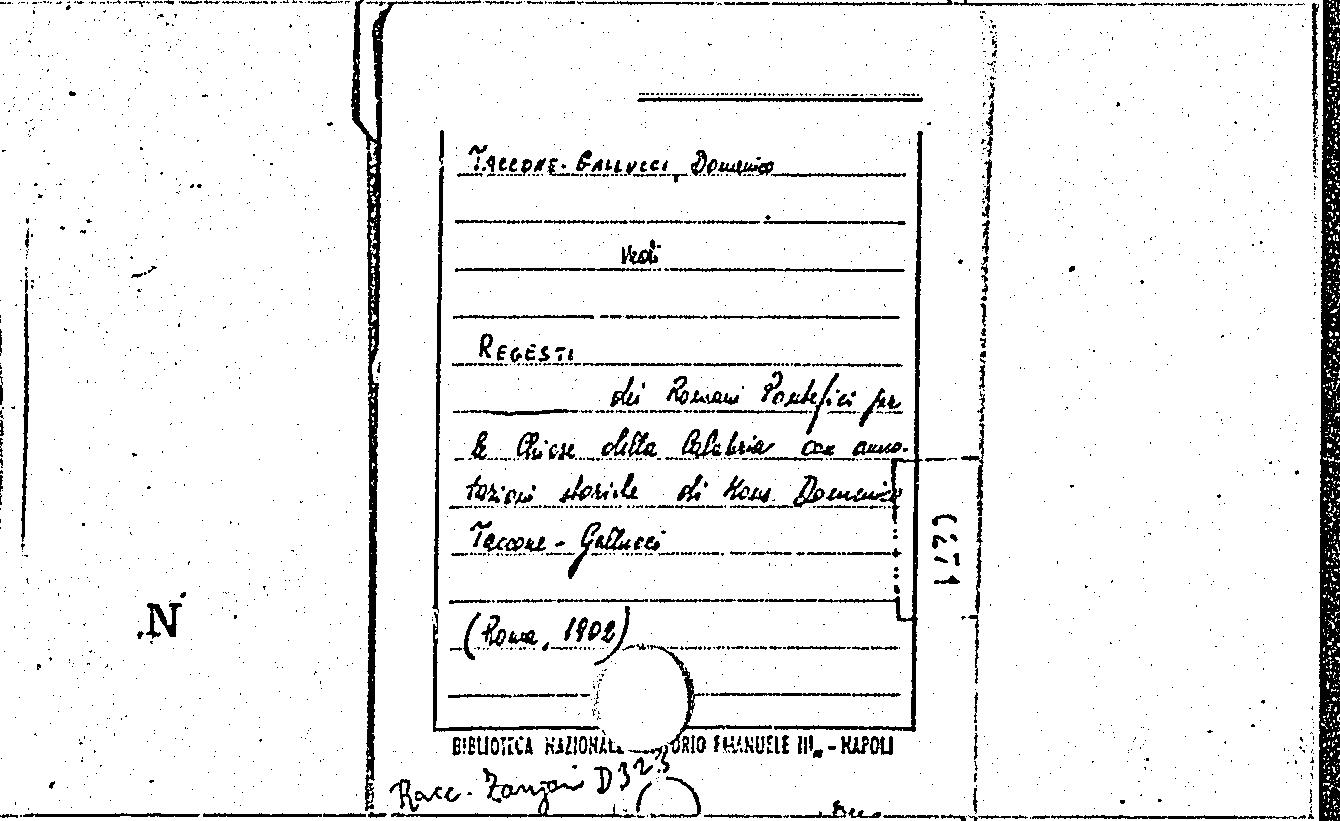 TACCONE-GALLUCCI, Domenico
Vedi
REGESTI
dei Romani Pontefici per
le Chiese della Calabria con anno-
tazioni storiche di Mons. Domenico
Taccone-Gallucci
(Roma, 1902)
BIBLIOTECA NAZIONALE VITTORIO EMANUELE III - NAPOLI
Racc. D 323
.N